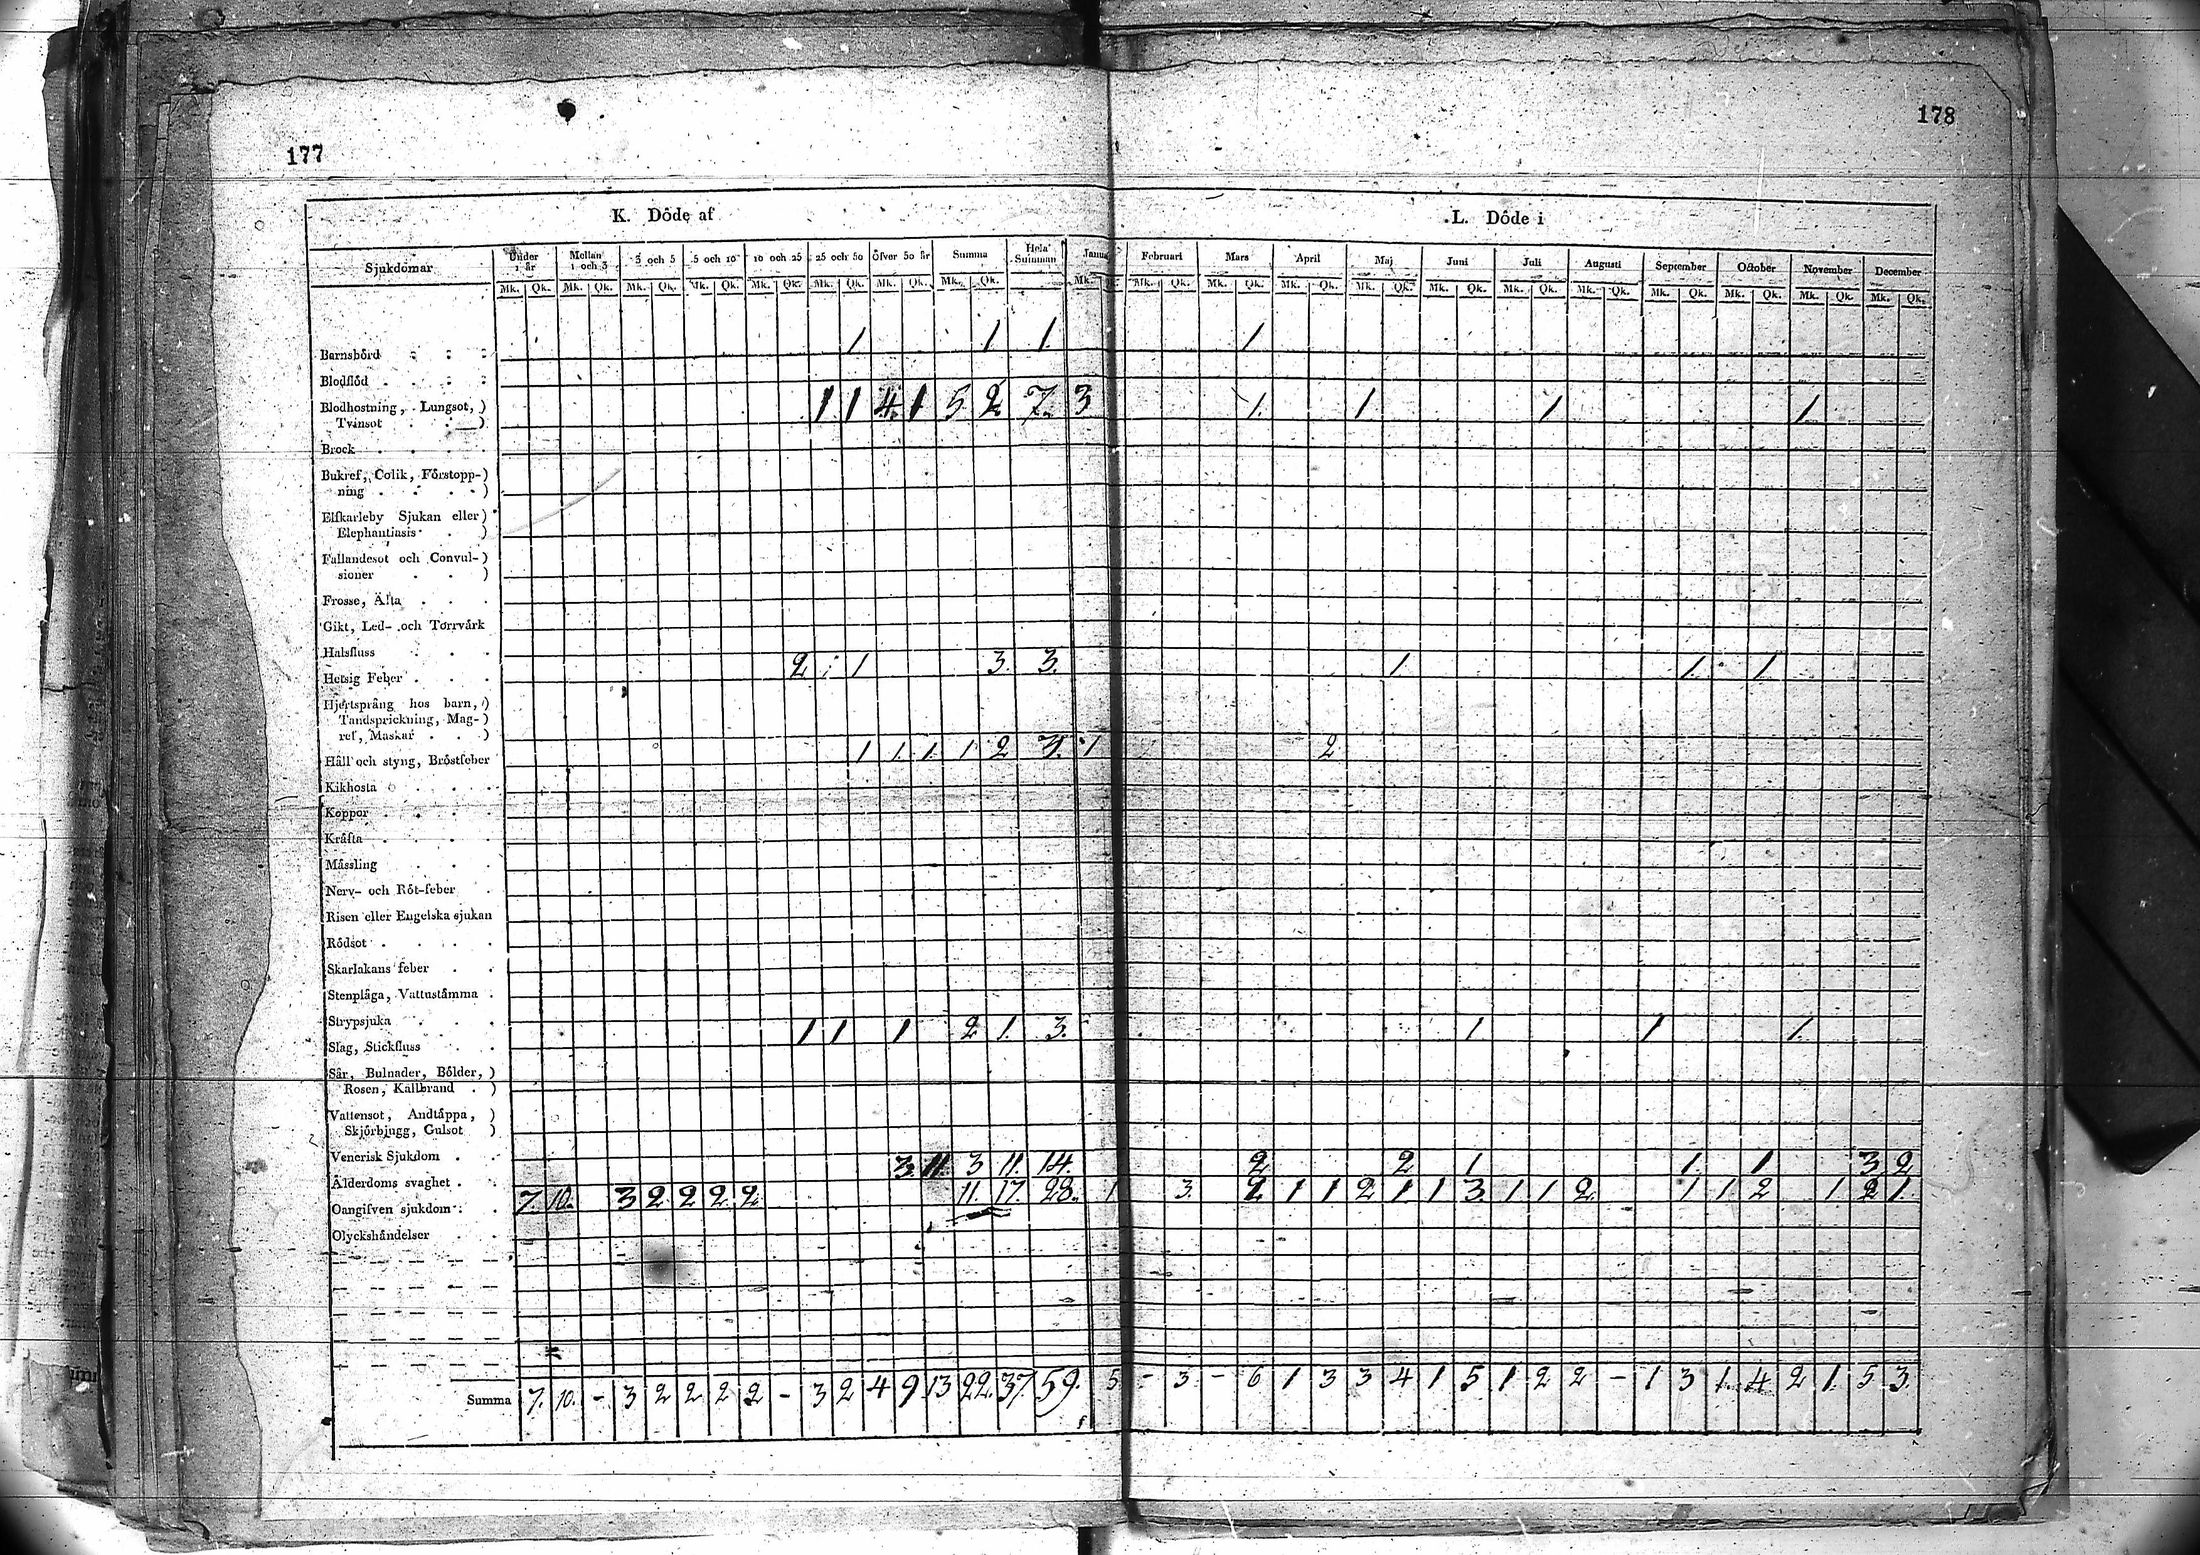 177
178
K. Döde af
L. Döde i
Sjukdomar Under 1 år Mellan 1 och 3 3 och 5 5 och 10 10 och 25 25 och 50 Öfver 50 år Summa Hela Summan Janua Februari Mars April Maj Juni Juli Augusti September October November December
Mk. Qk. Mk. Qk. Mk. Qk. Mk. Qk. Mk. Qk. Mk. Qk. Mk. Qk. Mk. Qk. Mk. Mk. Qk. Mk. Qk. Mk. Qk. Mk. Qk. Mk. Qk. Mk. Qk. Mk. Qk. Mk. Qk. Mk. Qk. Mk. Qk. Mk. Qk.
Barnsbörd 1 1 1 1
Blodflöd
Blodhostning, Lungsot, ) 1 1 4 1 5 2 7 3 1 1 1 1
Tvinsot )
Brock
Bukref, Colik, Förstopp- )
ning )
Elfkarleby Sjukan eller )
Elephantiasis )
Fallandesot och Convul- )
sioner )
Frosse, Älta
Gikt, Led- och Torrvärk
Halsfluss
Hetsig Feber 2 1 3. 3. 1. 1. 1.
Hjertsprång hos barn, )
Tandsprickning, Mag- )
ref, Maskar )
Håll och styng, Bröstfeber 1 1. 1. 1 2 3. 1 2
Kikhosta
Koppor
Kräfta
Mässling
Nerv- och Röt-feber
Risen eller Engelska sjukan
Rödsot
Skarlakans feber
Stenplåga, Vattustämma
Strypsjuka
Slag, Stickfluss 1 1 1 2 1. 3. 1 1 1.
Sår, Bulnader, Bölder, )
Rosen, Kallbrand )
Vattensot, Andtäppa, )
Skjörbjugg, Gulsot )
Venerisk Sjukdom
Ålderdoms svaghet 3. 11. 3 11. 14. 2 2 1 1. 1 3 2
Oangifven sjukdom 7. 10. 3 2 2 2 2 11. 17. 28. 1 3. 2 1 1 2 1 1 3. 1 1 2 1 1 2 1 2 1.
Olyckshändelser
Summa 7. 10. - 3 2 2 2 2 - 3 2 4 9 13 22. 37. 59. 5 - 3. - 6 1 3 3 4 1 5 1 2 2 - 1 3 1 4 2 1. 5 3.